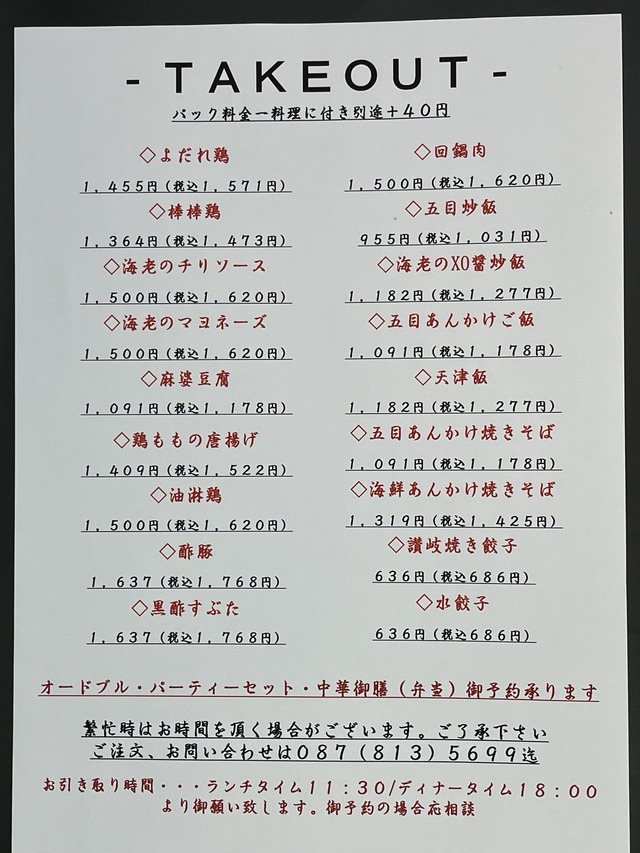 - TAKEOUT -
パック料金一料理に付き別途+40円
◇よだれ鶏
1,455円(税込1,571円)
◇棒棒鶏
1,364円(税込1,473円)
◇海老のチリソース
1,500円(税込1,620円)
◇海老のマヨネーズ
1,500円(税込1,620円)
◇麻婆豆腐
1,091円(税込1,178円)
◇鶏ももの唐揚げ
1,409円(税込1,522円)
◇油淋鶏
1,500円(税込1,620円)
◇酢豚
1,637(税込1,768円)
◇黒酢すぶた
1,637(税込1,768円)
◇回鍋肉
1,500円(税込1,620円)
◇五目炒飯
955円(税込1,031円)
◇海老のXO醤炒飯
1,182円(税込1,277円)
◇五目あんかけご飯
1,091円(税込1,178円)
◇天津飯
1,182円(税込1,277円)
◇五目あんかけ焼きそば
1,091円(税込1,178円)
◇海鮮あんかけ焼きそば
1,319円(税込1,425円)
◇讃岐焼き餃子
636円(税込686円)
◇水餃子
636円(税込686円)
オードブル・パーティーセット・中華御膳(弁当)御予約承ります
繁忙時はお時間を頂く場合がございます。ご了承下さい
ご注文、お問い合わせは087(813)5699迄
お引き取り時間・・・ランチタイム11:30/ディナータイム18:00
より御願い致します。御予約の場合応相談